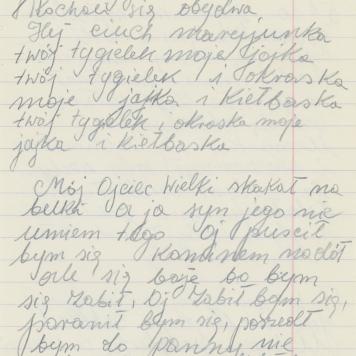 Kochał się obydwa
Hej ciuch maryjunka
twój tygielek moje jajka
twój tygielek i okraska
moje jajka i kiełbaska
twój tygielek i okraska moje
jajka i kiełbaska
Mój Ojciec Wielki skakał na
belki a ja syn jego nie
umiem tego Oj puścił
bym się kominem nadół
ale się boje bo bym
się zabił, Oj zabił bym się,
poranił bym się, poszedł
bym do panny nie